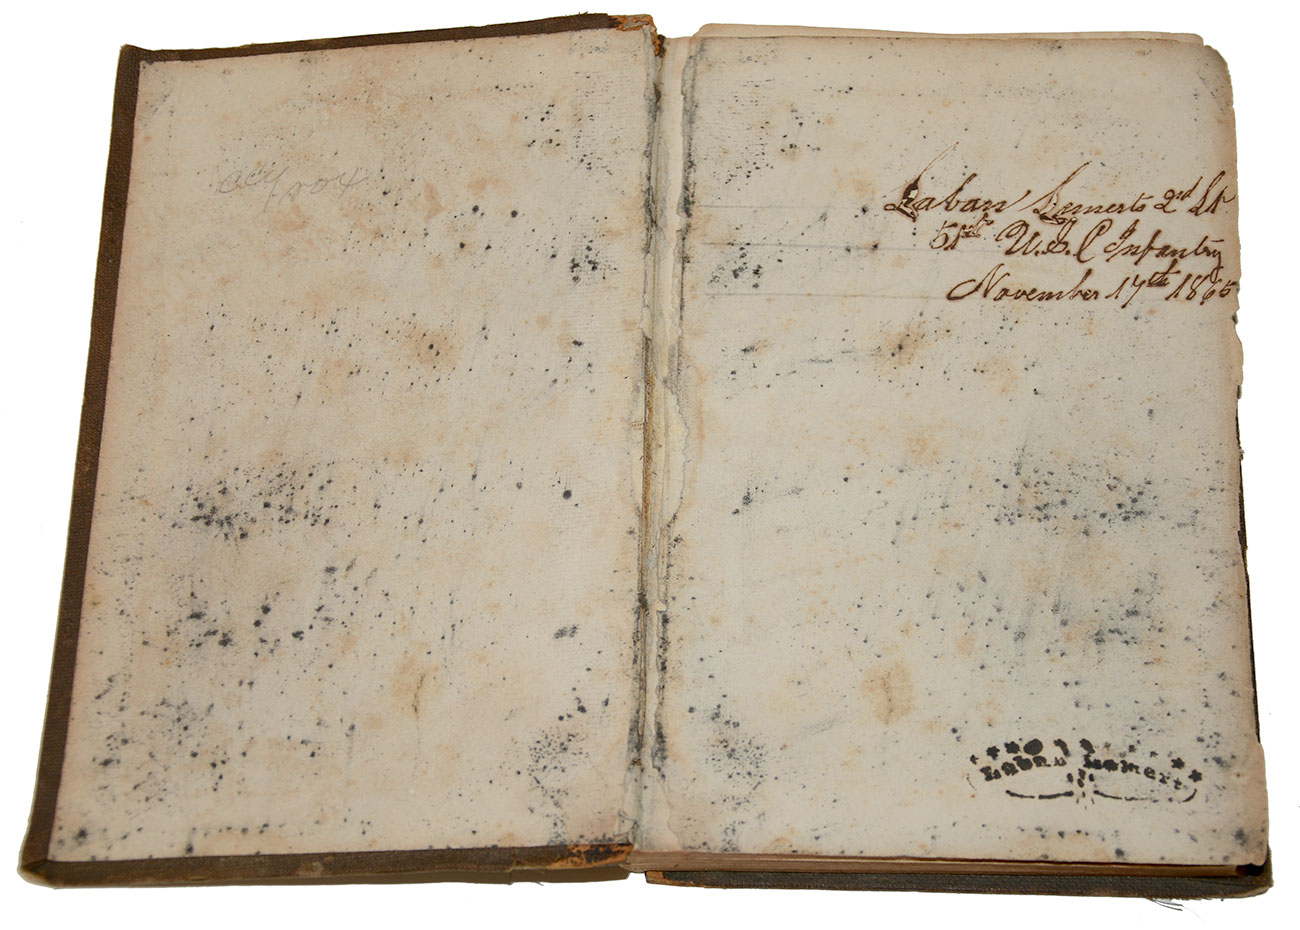 Laban Lemerts 2nd Lt
51st U.S.C Infantry
November 17th 1865
Laban Lemert